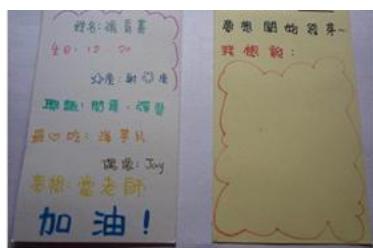 姓名:張育書
生日:12.20
分座:射手座
興趣:閱讀、彈琴
最心吃:洋芋片
偶像:Jay
夢想:當老師
加油!
夢想開始發芽~
我想說: